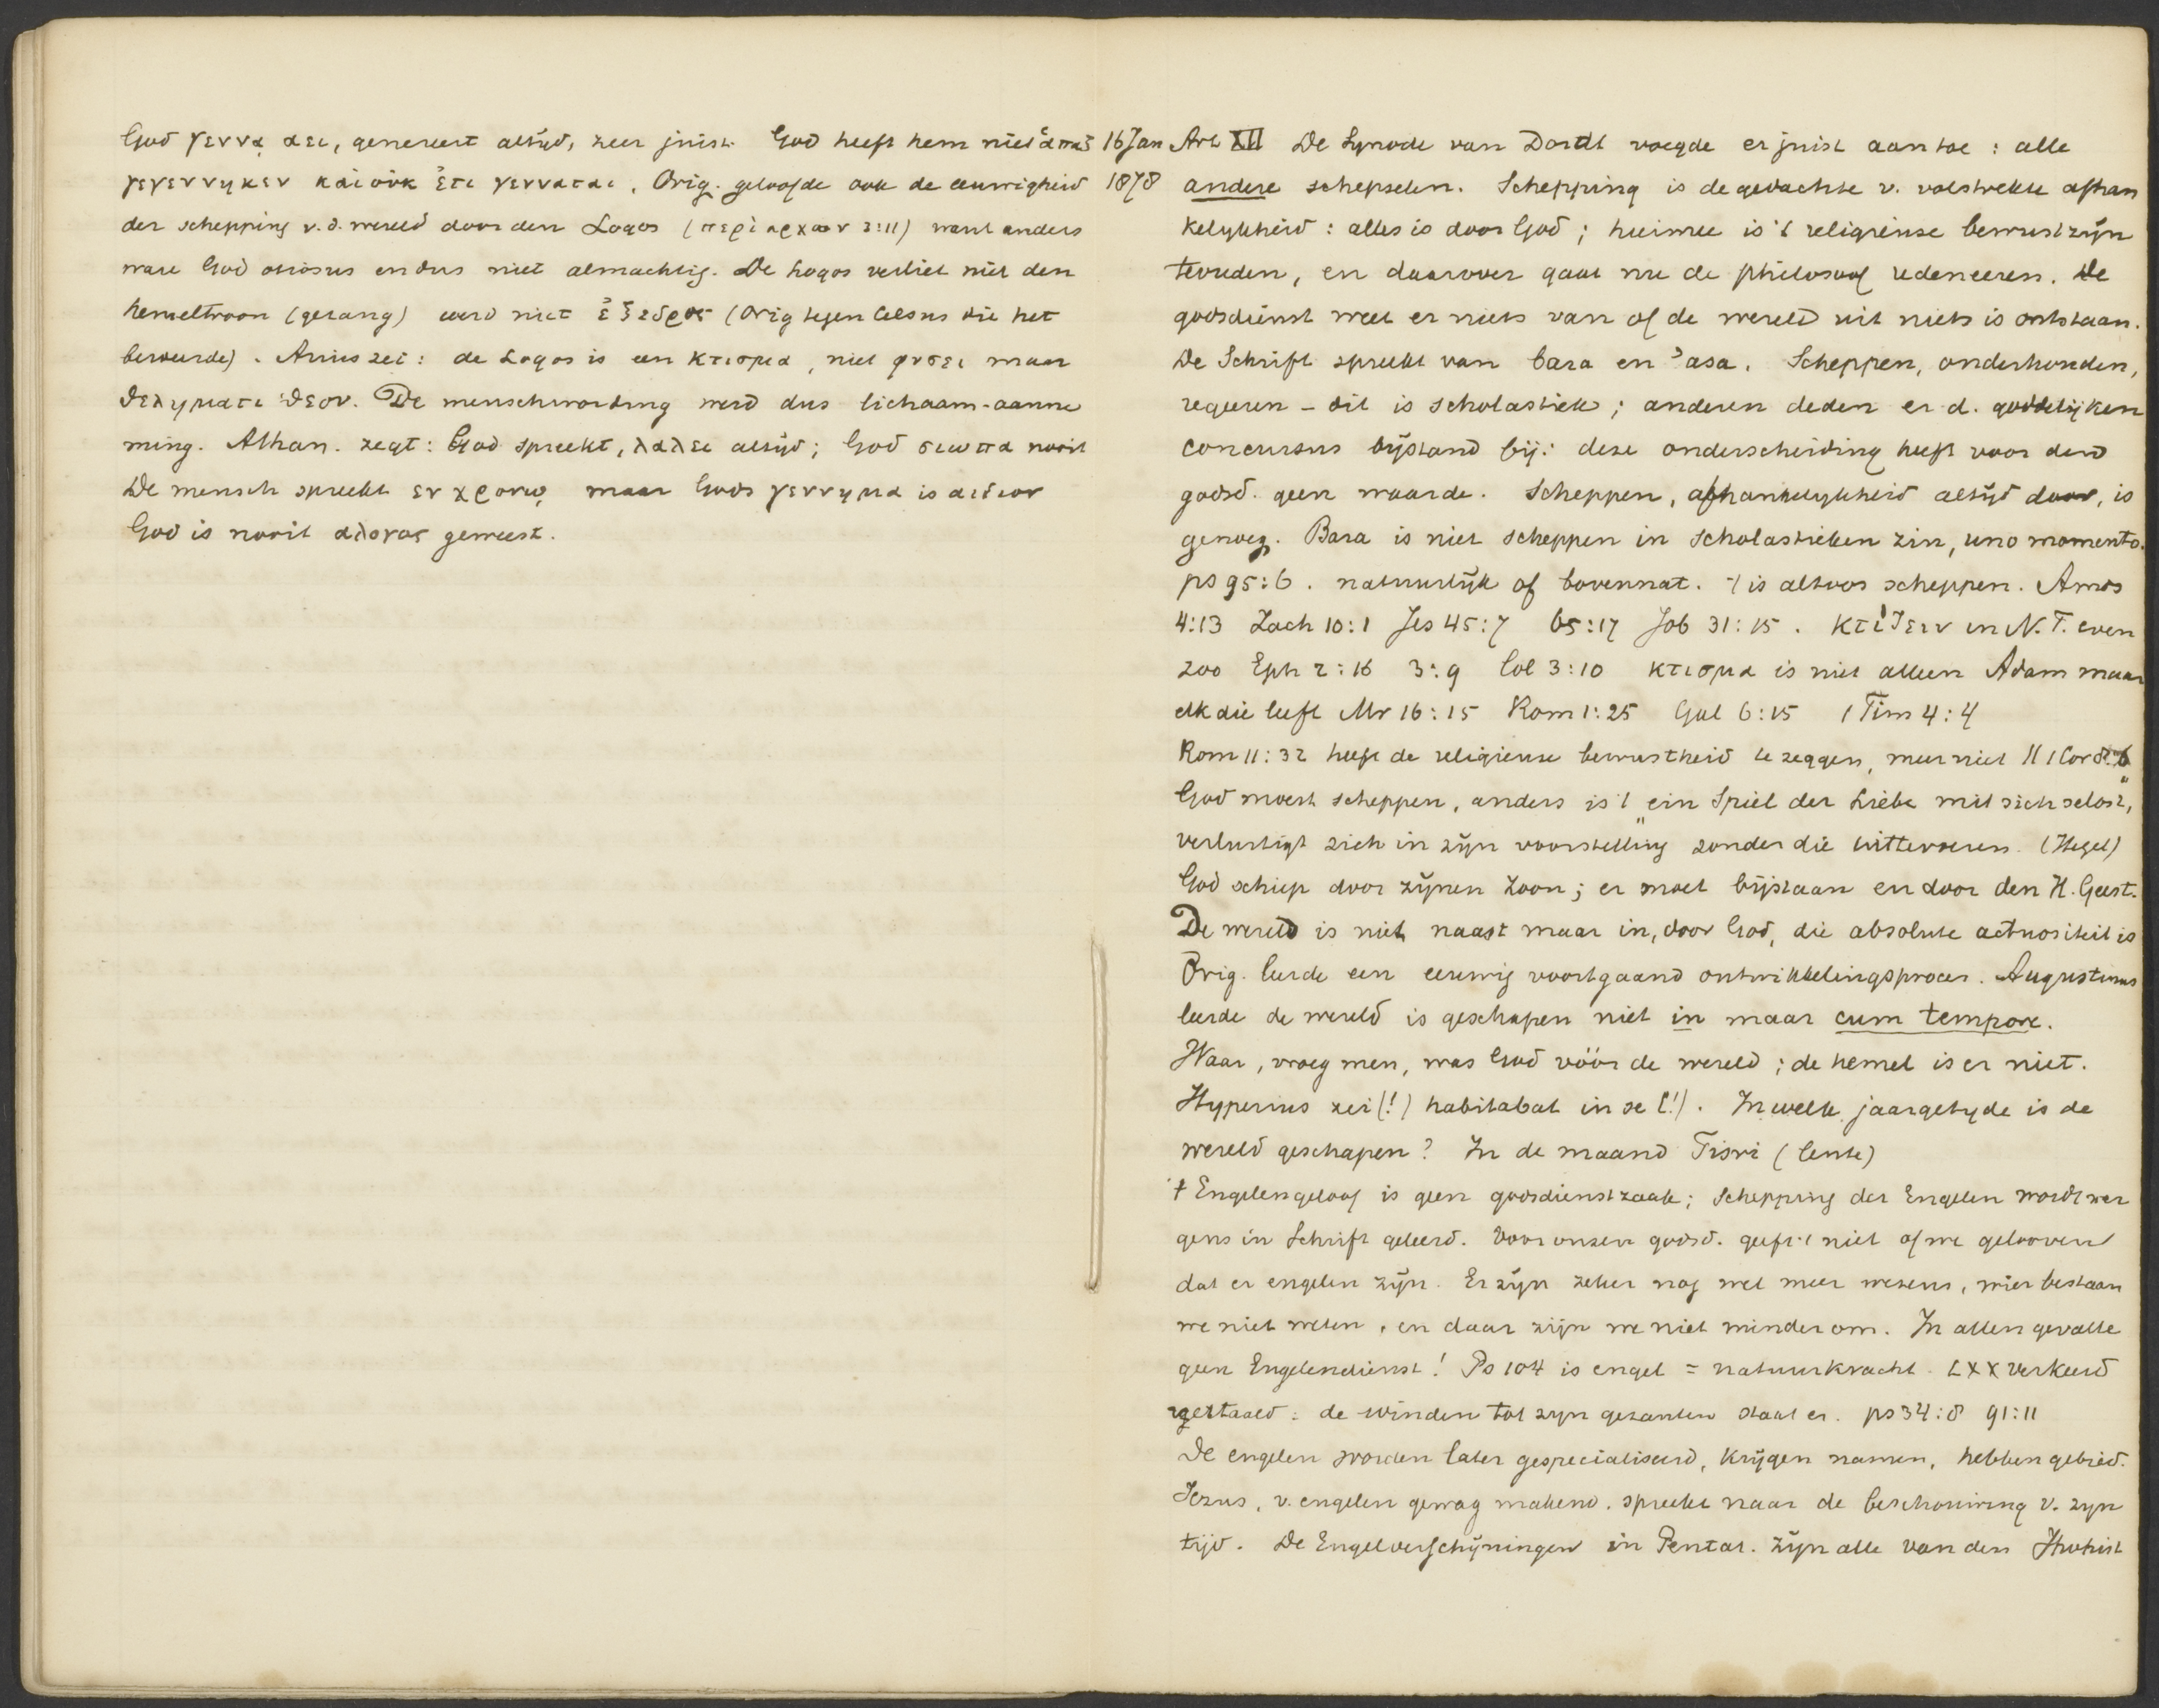 God γεννᾳ αει, genereert altijd, zeer juist. God heeft hem niet ἁπαξ
γεγεννηκεν και οὐκ ἔτι γενναται. Orig. geloofde ook de eeuwigheid
der schepping v.d. wereld door den Logos (περι αρχων 3:11) want anders
ware God otiosus en dus niet almachtig. De Logos verliet niet den
hemeltroon (gezang) werd niet ἐξεδρος (Orig tegen Celsus die het
beweerde). Arius zei: de Logos is een κτισμα, niet φυσει maar
θεληματι θεου. De menschwording werd dus lichaam-aanne
ming. Athan. zegt: God spreekt, λαλει altijd; God σιωπα nooit
De mensch spreekt εν χρονῳ maar Gods γεννημα is αιδιον
God is nooit αλογος geweest.
16 Jan
1878
Art XII De Synode van Dordt voegde er juist aan toe: alle
andere schepselen. Schepping is de gedachte v. volstrekte afhan
kelykheid: alles is door God; hiermee is 't religieuse bewustzijn
tevreden, en daarover gaat nu de philosoof redeneeren. De
godsdienst weet er niets van of de wereld uit niets is ontstaan.
De Schrift spreekt van bara en 'asa. Scheppen, onderhouden,
regeeren - dit is scholastiek; anderen deden er d. goddelijken
concursus bijstand bij: deze onderscheiding heeft voor den
godsd. geen waarde. Scheppen, afhankelykheid altijd door, is
genoeg. Bara is niet scheppen in scholastieken zin, uno momento.
ps 95:6. natuurlijk of bovennat. 't is altoos scheppen. Amos
4:13 Zach 10:1 Jes 45:7 65:17 Job 31:15. κτίζειν in N.T. even
zoo Eph 2:16 3:9 Col 3:10 κτισμα is niet alleen Adam maar
elk die leeft Mr 16:15 Rom 1:25 Gal 6:15 1 Tim 4:4
Rom 11:32 heeft de religieuse bewustheid te zeggen, meer niet // 1 Cor 8:6
God moest scheppen, anders is 't „ein Spiel der Liebe mit sich selbst",
verlustigt zich in zijn voorstelling zonder die uittevoeren. (Hegel)
God schiep door zijnen Zoon; er moet bijstaan en door den H. Geest.
De wereld is niet naast maar in, door God, die absolute actuositeit is
Orig. leerde een eeuwig voortgaand ontwikkelingsproces. Augustinus
leerde de wereld is geschapen niet in maar cum tempore.
Waar, vroeg men, was God vóór de wereld; de hemel is er niet.
Hyperius zei (!) habitabat in se (!). In welk jaargetyde is de
wereld geschapen? In de maand Tisri (lente)
't Engelengeloof is geen godsdienstzaak; schepping der Engelen wordt ner
gens in Schrift geleerd. Voor onzen godsd. geeft 't niet of we gelooven
dat er engelen zijn. Er zijn zeker nog wel meer wezens, wier bestaan
we niet weten, en daar zijn we niet minder om. In allen gevalle
geen Engelendienst! Ps 104 is engel = natuurkracht. LXX verkeerd
vertaald: de winden tot zyn gezanten staat er. ps 34:8 91:11
De engelen worden later gespecialiseerd, krijgen namen, hebben gebied.
Jezus, v. engelen gewag makend, spreekt naar de beschouwing v. zyn
tijd. De Engelverschijningen in Pentat. zijn alle van den